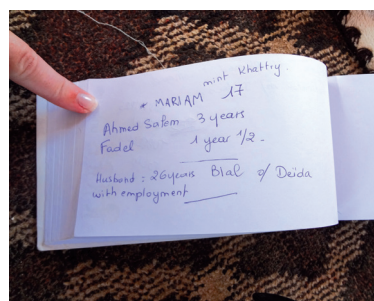 mint Khattry.
* MARIAM 17
Ahmed Salem 3 years
Fadel 1 year 1/2 -
Husband : 26years Blal o/ Deida
with employment